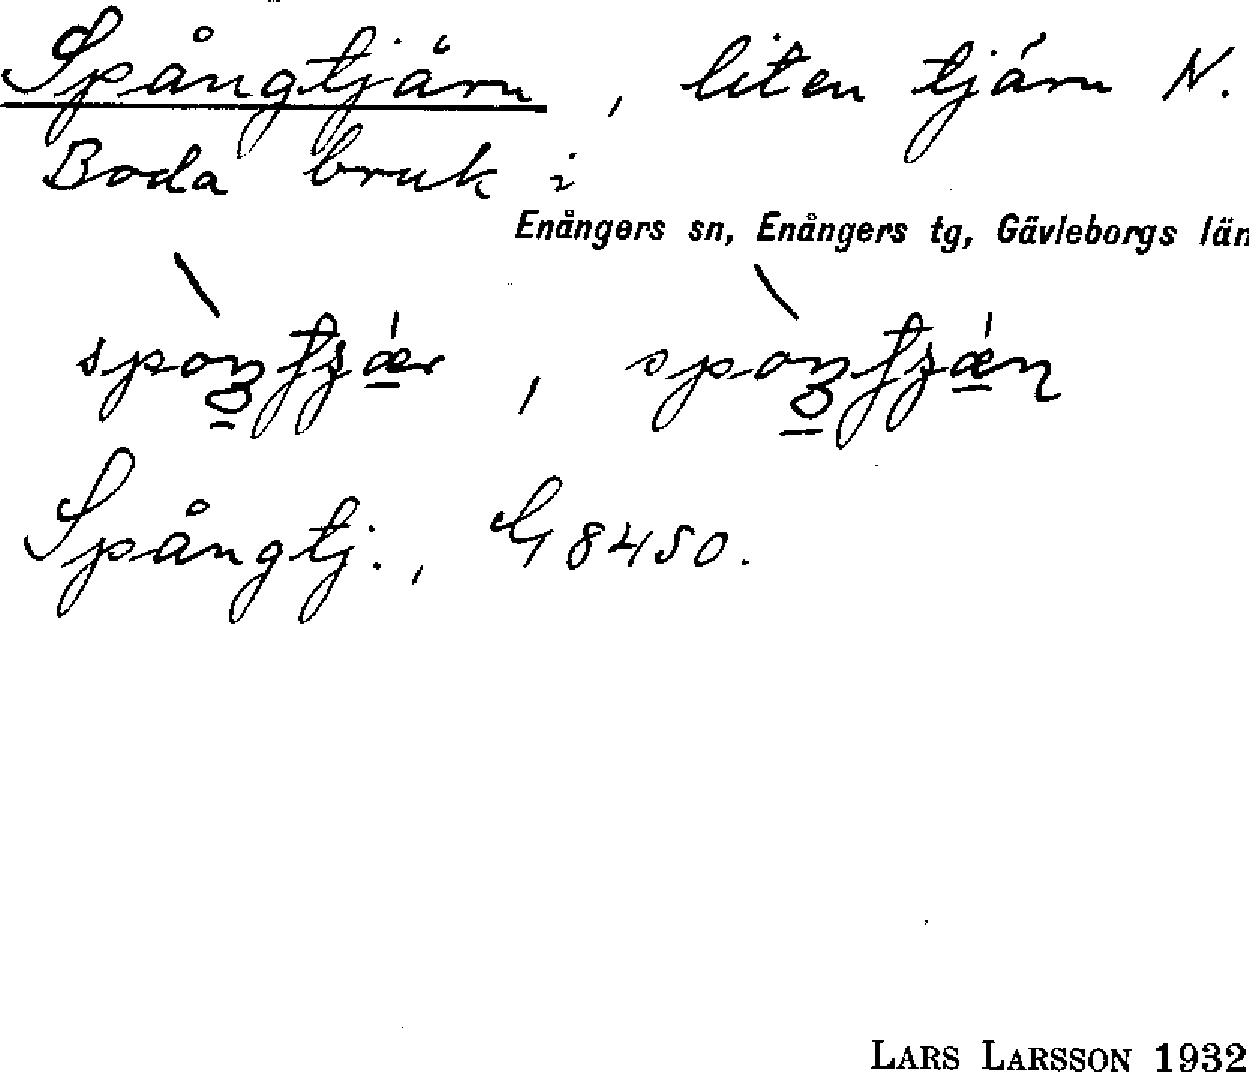 Spångtjärn, liten tjärn N.
Boda bruk i
Enångers sn, Enångers tg, Gävleborgs län
Spångtj., G 8450.
LARS LARSSON 1932